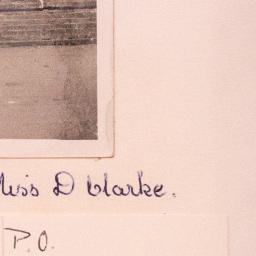 Miss D Clarke.
P.O.